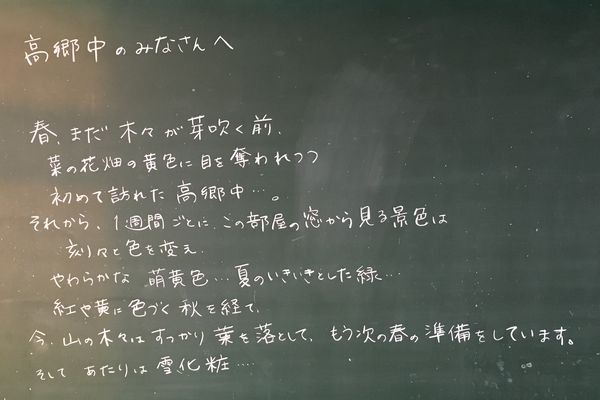 高郷中のみなさんへ
春、まだ木々が芽吹く前、
菜の花畑の黄色に目を奪われつつ
初めて訪れた高郷中…。
それから、1週間ごとに、この部屋の窓から見る景色は
刻々と色を変え、
やわらかな 萌黄色…夏のいきいきとした緑…
紅や黄に色づく秋を経て、
今、山の木々はすっかり葉を落として、もう次の春の準備をしています。
そして あたりは雪化粧….